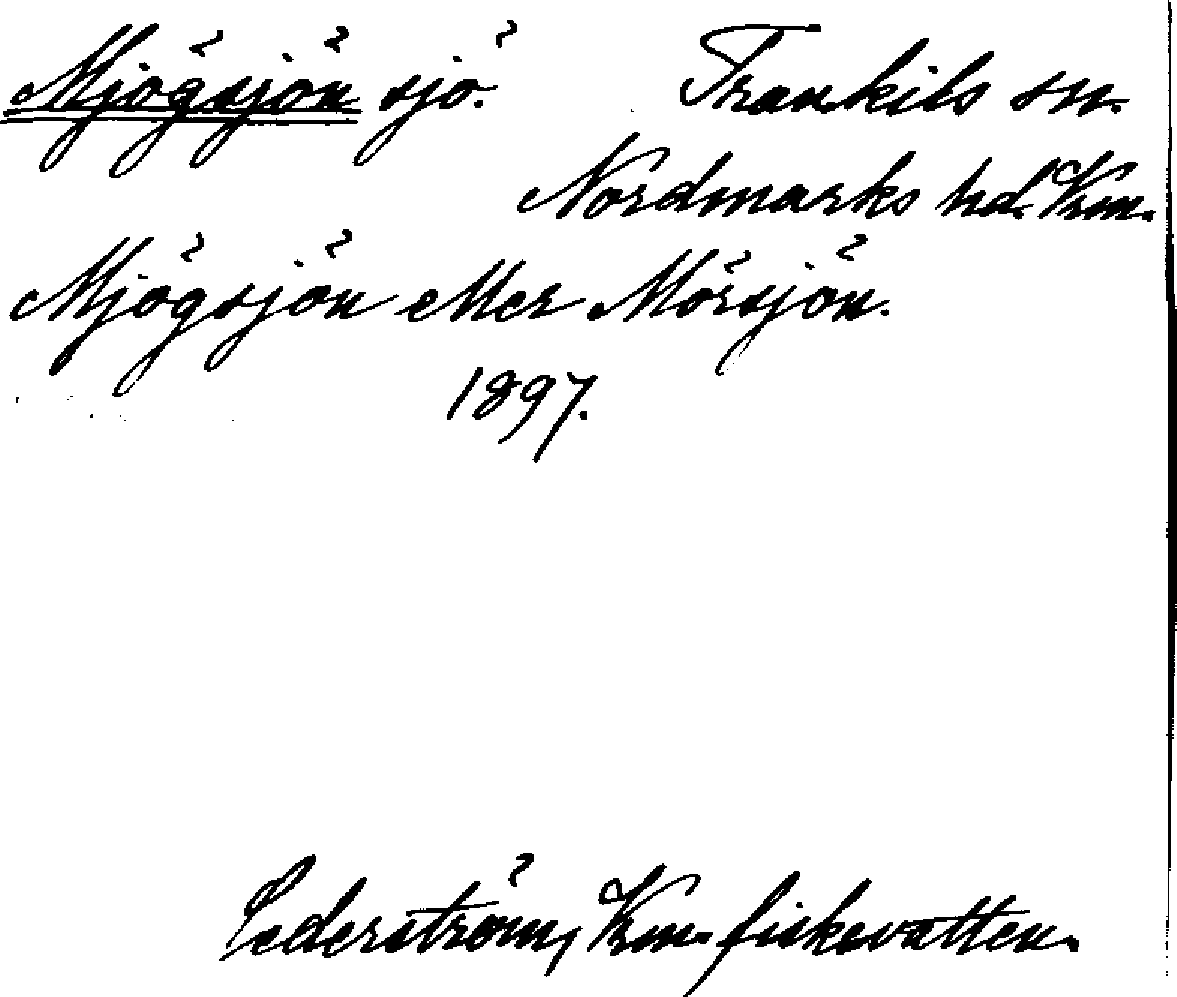 Mjögsjön sjö. Trankils sn.
Nordmarks hd. Vrm.
Mjögsjön eller Mörsjön.
1897.
Cederström, Vrm. fiskevatten.